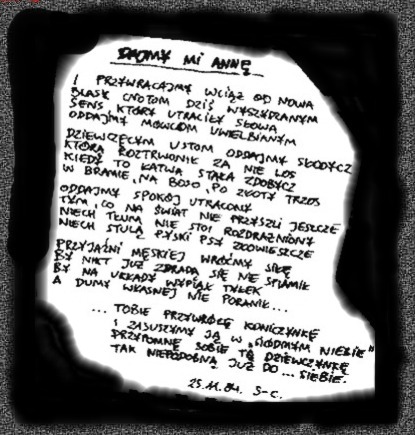 DAJMY MI ANNĘ
I PRZYWRACAJMY WCIĄŻ OD NOWA
BLASK CNOTOM DZIŚ WYSZYDZANYM
SENS KTÓRY UTRACIŁY SŁOWA
ODDAJMY MOWCOM UWIELBIANYM
DZIEWCZĘCYM USTOM ODDAJMY SŁODYCZ
KTÓRĄ ROZTRWONIŁ ZA NIE LOS
KIEDY TO ŁATWA STAŁA ZDOBYCZ
W BRAMIE, NA BOSO, PO ZŁOTY TRZOS
ODDAJMY SPOKÓJ UTRACONY
TYM, CO NA ŚWIAT NIE PRZYSZLI JESZCZE
NIECH TŁUM NIE STOI ROZDRAŻNIONY
NIECH STULĄ PYSKI PSY ZŁOWIESZCZE
PRZYJAŹNI MĘSKIEJ WRÓĆMY SIŁĘ
BY NIKT JUŻ ZDRADĄ SIĘ NIE SPLAMIŁ
BY NA UKŁADY WYPIĄŁ TYŁEK
A DUMY WŁASNEJ NIE PORANIŁ...
... TOBIE PRZYWRÓCĘ KONICZYNKĘ
I ZASUSZYMY JĄ W „SIÓDMYM NIEBIE"
PRZYPOMNĘ SOBIE TĘ DZIEWCZYNKĘ
TAK NIEPODOBNĄ JUŻ DO ... SIEBIE.
25.11.84. S-C.